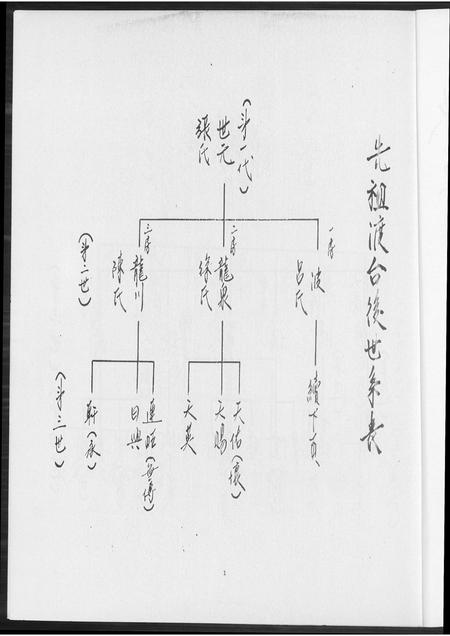 先祖渡台後世系表
(第一代)
世元
張氏
一房
波
呂氏
續下頁
二房
龍泉
徐氏
天佑(懷)
天賜
天英
三房
龍川
陳氏
連旺(無傳)
日興
軒(永)
(第二世)
(第三世)
1